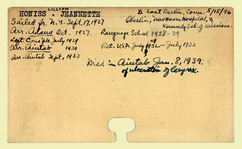 LILLIAN
HONISS x JEANNETTE
B. East Berlin, Conn. 5/15/96
Sailed fr. N.Y. Sept. 17, 1927
Oberlin, New Haven Hospital, &
Kennedy Sch. of Missions.
Arr. Adana Oct. 1927.
Language School 1928-29
July 1929
Ret. U.S.A. July 1932 - July 1933
Arr. Aintab 1930
Arr. Aintab Sept. 1933
Died in Aintab Jan. 8, 1939.
of ulceration of larynx.